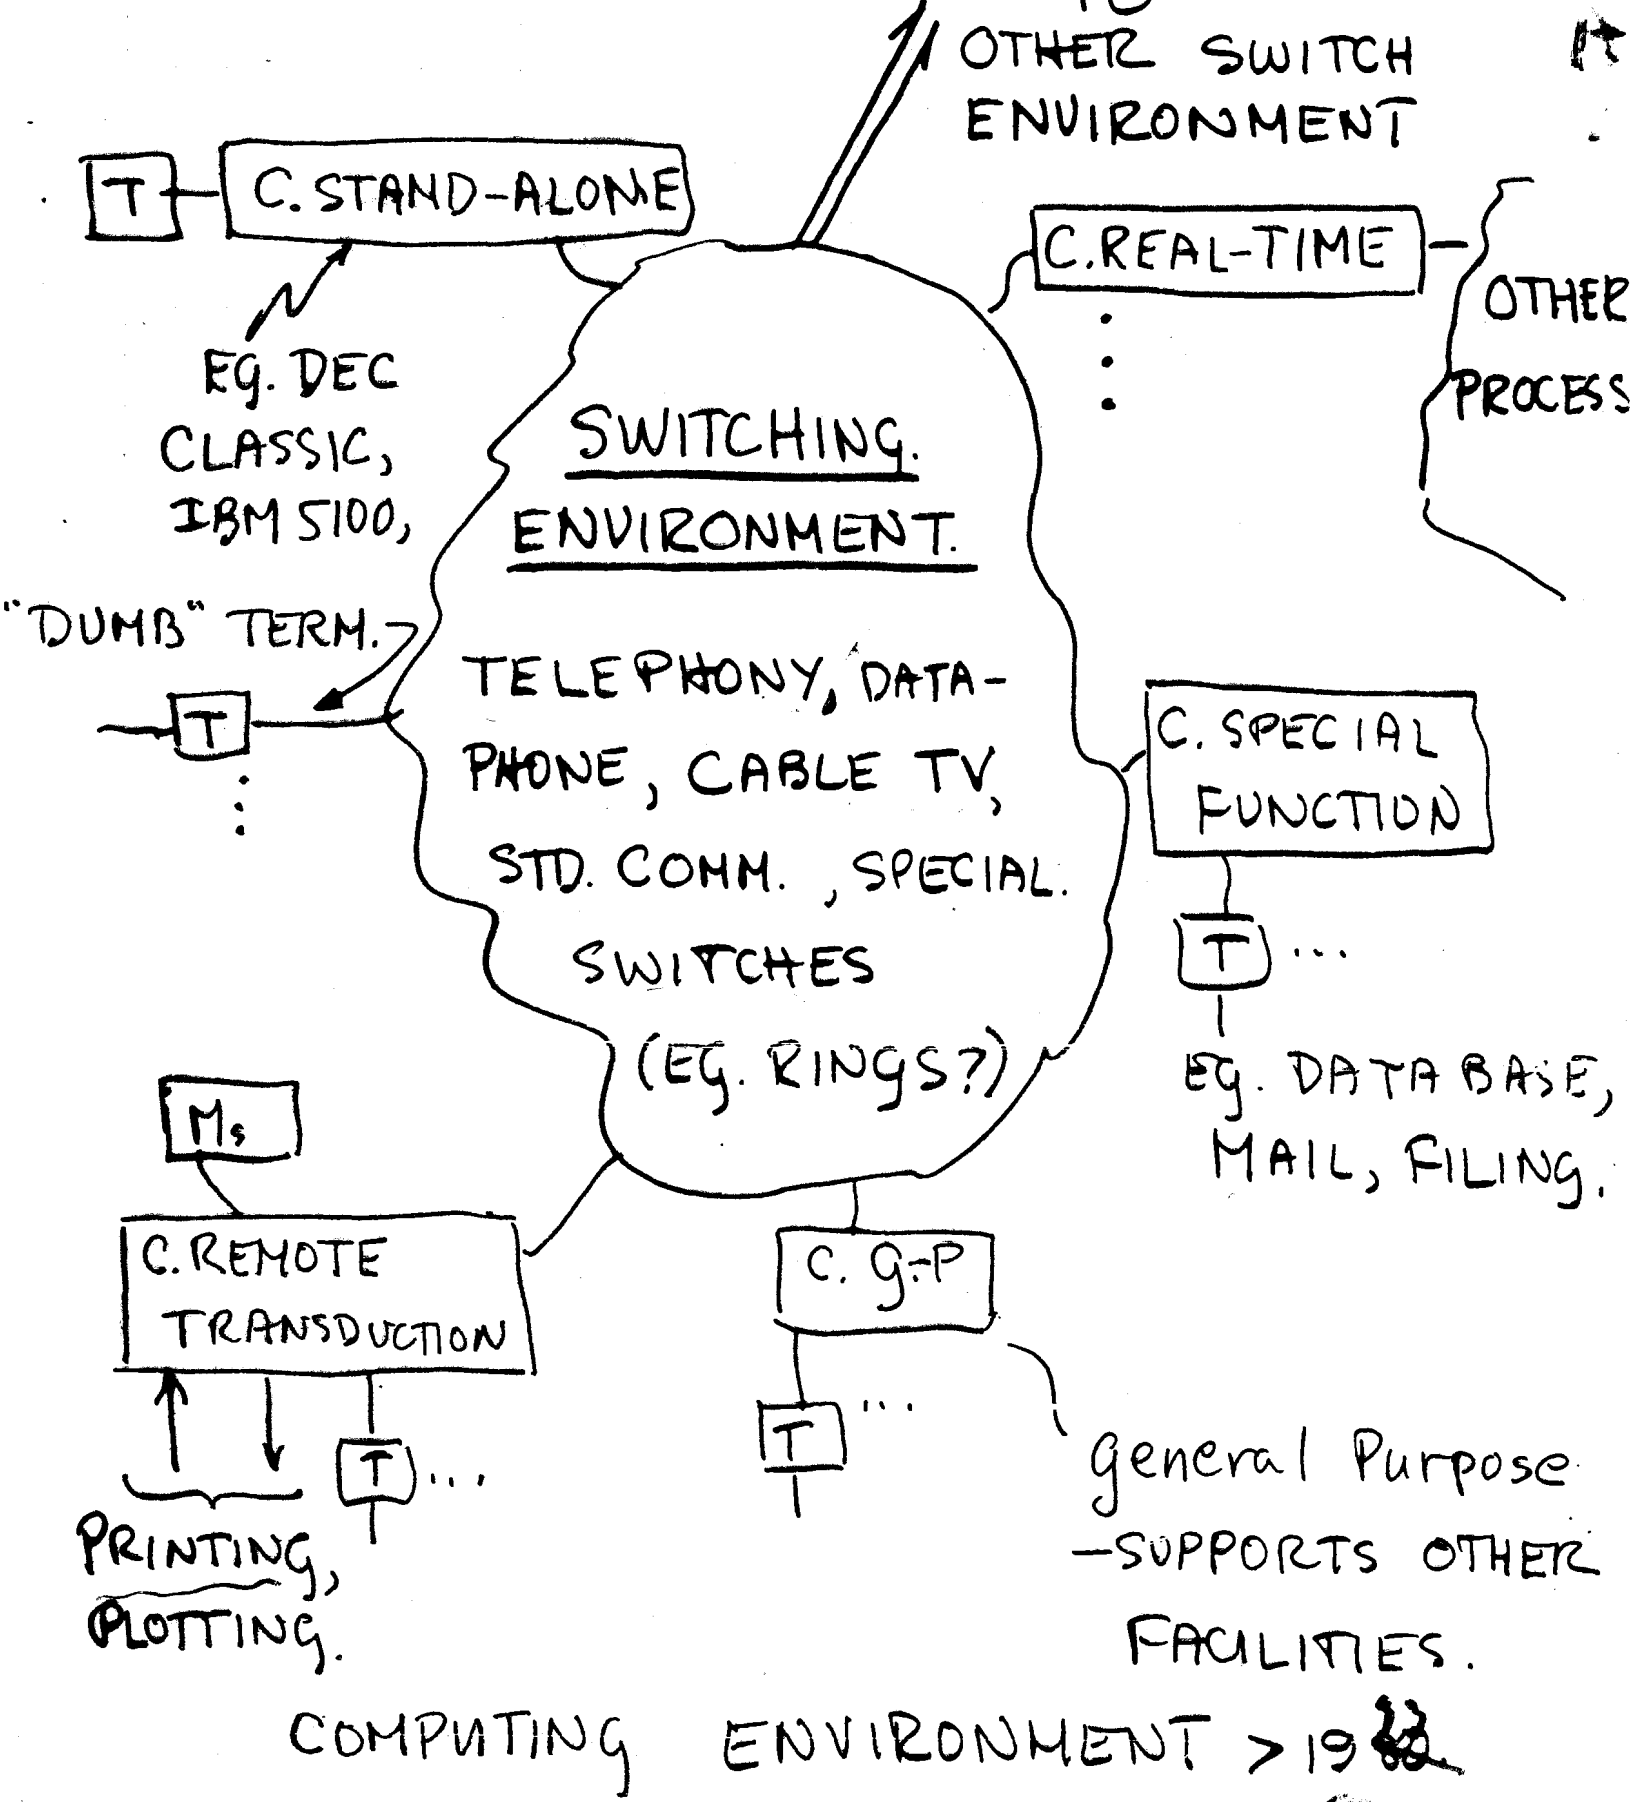 OTHER SWITCH
ENVIRONMENT
T
C. STAND-ALONE
C. REAL-TIME
OTHER
PROCESS
EG. DEC
CLASSIC,
IBM 5100,
"DUMB" TERM.
T
SWITCHING.
ENVIRONMENT.
TELEPHONY, DATA-
PHONE, CABLE TV,
STD. COMM. , SPECIAL.
SWITCHES
(EG. RINGS?)
C. SPECIAL
FUNCTION
T ...
EG. DATABASE,
MAIL, FILING.
Ms
C. REMOTE
TRANSDUCTION
T ...
PRINTING,
PLOTTING.
C. G-P
T ...
General Purpose
-SUPPORTS OTHER
FACILITIES.
COMPUTING ENVIRONMENT > 19